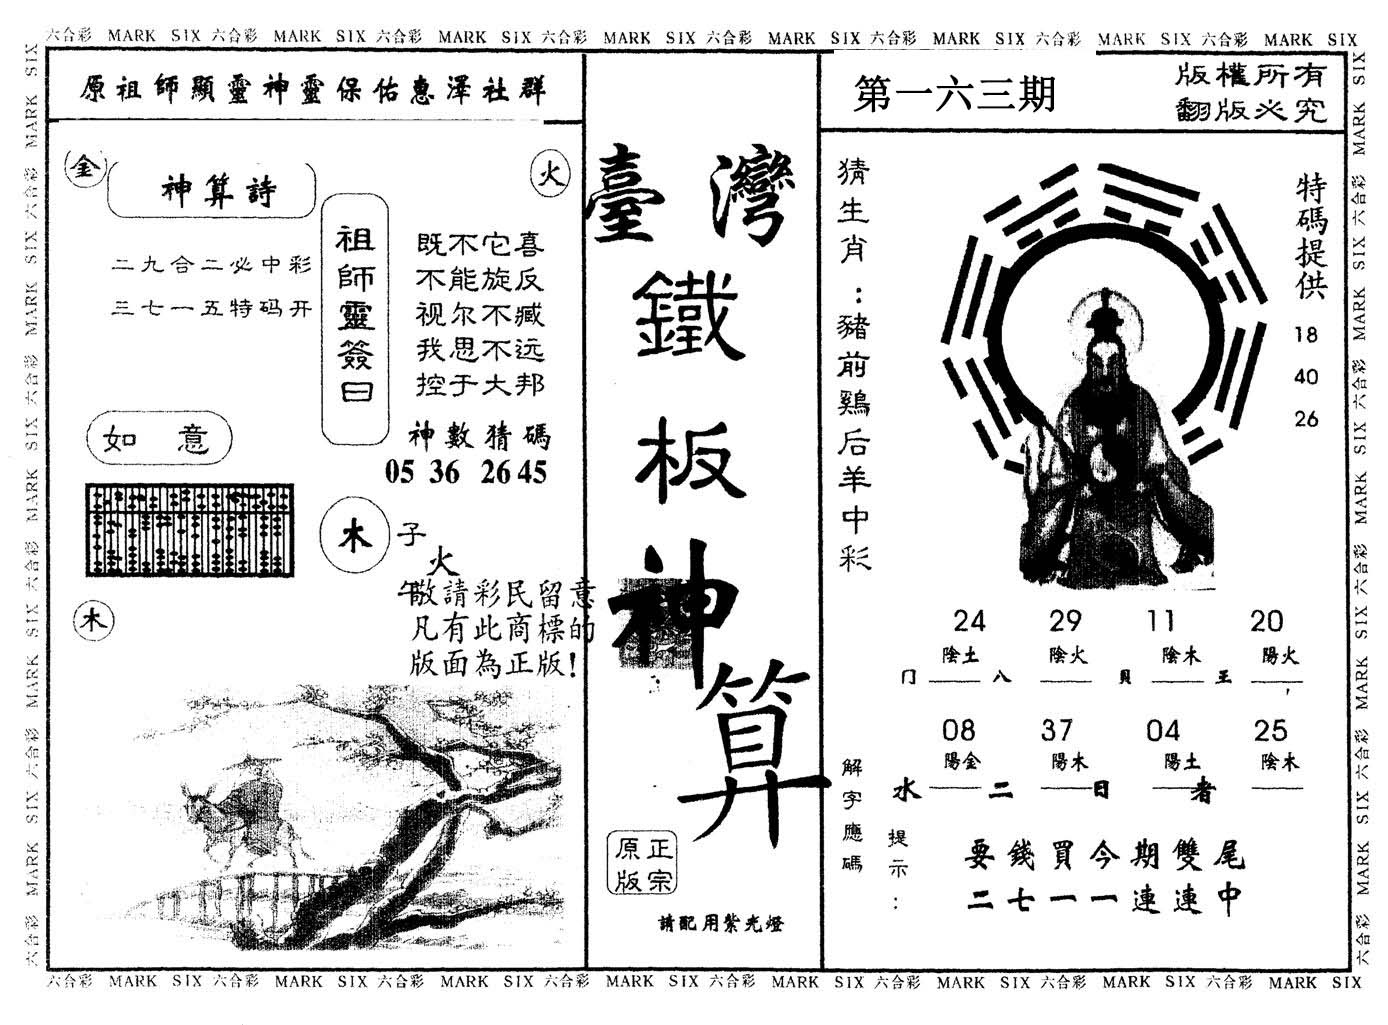 六合彩 MARK SIX 六合彩 MARK SIX 六合彩 MARK SIX 六合彩 MARK SIX 六合彩 MARK SIX 六合彩 MARK SIX 六合彩 MARK SIX 六合彩 MARK SIX
原祖師顯靈神靈保佑惠澤社群
金
神算詩
火
二九合二必中彩
三七一五特码开
祖師靈簽曰
既不它喜
不能旋反
视尔不臧
我思不远
控于大邦
如意
神數猜碼
05 36 26 45
木
子
火
木
敬請彩民留意
凡有此商標的
版面為正版!
臺灣
鐵
板
神
算
正宗
原版
請配用紫光燈
第一六三期
版權所有
翻版必究
猜生肖:豬前鷄后羊中彩
特碼提供
18
40
26
24 29 11 20
陰土 陰火 陰木 陽火
冂 八 貝 王
08 37 04 25
陽金 陽木 陽土 陰木
水 二 日 者
解字應碼
提示:
要錢買今期雙尾
二七一一連連中
六合彩 MARK SIX 六合彩 MARK SIX 六合彩 MARK SIX 六合彩 MARK SIX 六合彩 MARK SIX 六合彩 MARK SIX 六合彩 MARK SIX 六合彩 MARK SIX